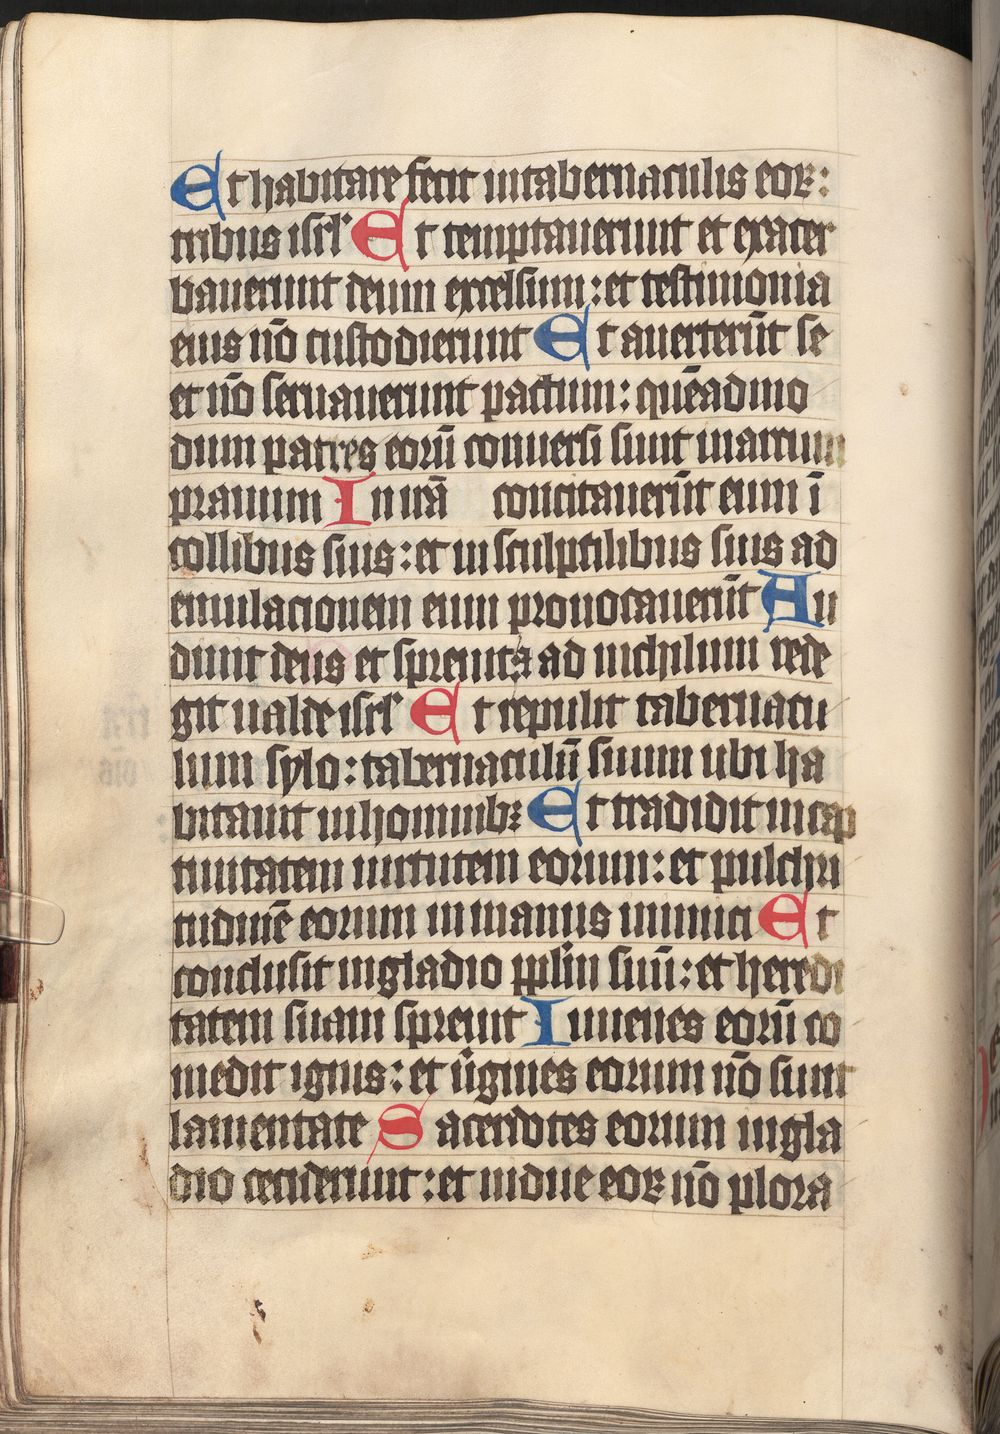 Et habitare fecit in tabernaculis eoꝝ:
tribus isrl' Et temptauerunt et exacer
bauerunt deum excelsum: et testimonia
eius nō custodierunt Et auerterūt se
et nō seruauerunt pactum: quēadmo
dum patres eorū conuersi sunt in arcum
prauum In irā concitauerūt eum ī
collibus suis: et in sculptilibus suis ad
emulacionem eum prouocauerūt Au
diuit deus et spreuit: ad nichilum rede
git ualde isrl' Et repulit tabernacu
lum sylo: tabernaculū suum ubi ha
bitauit in hominibꝫ Et tradidit in cap
tiuitatem uirtutem eorum: et pulchri
tudinē eorum in manus inimici Et
conclusit in gladio pplm̄ suū: et heredi
tatem suam spreuit Iuuenes eorū co
medit ignis: et ūgines eorum nō sunt
lamentate Sacerdotes eorum in gla
dio ceciderunt: et uidue eoꝝ nō plora